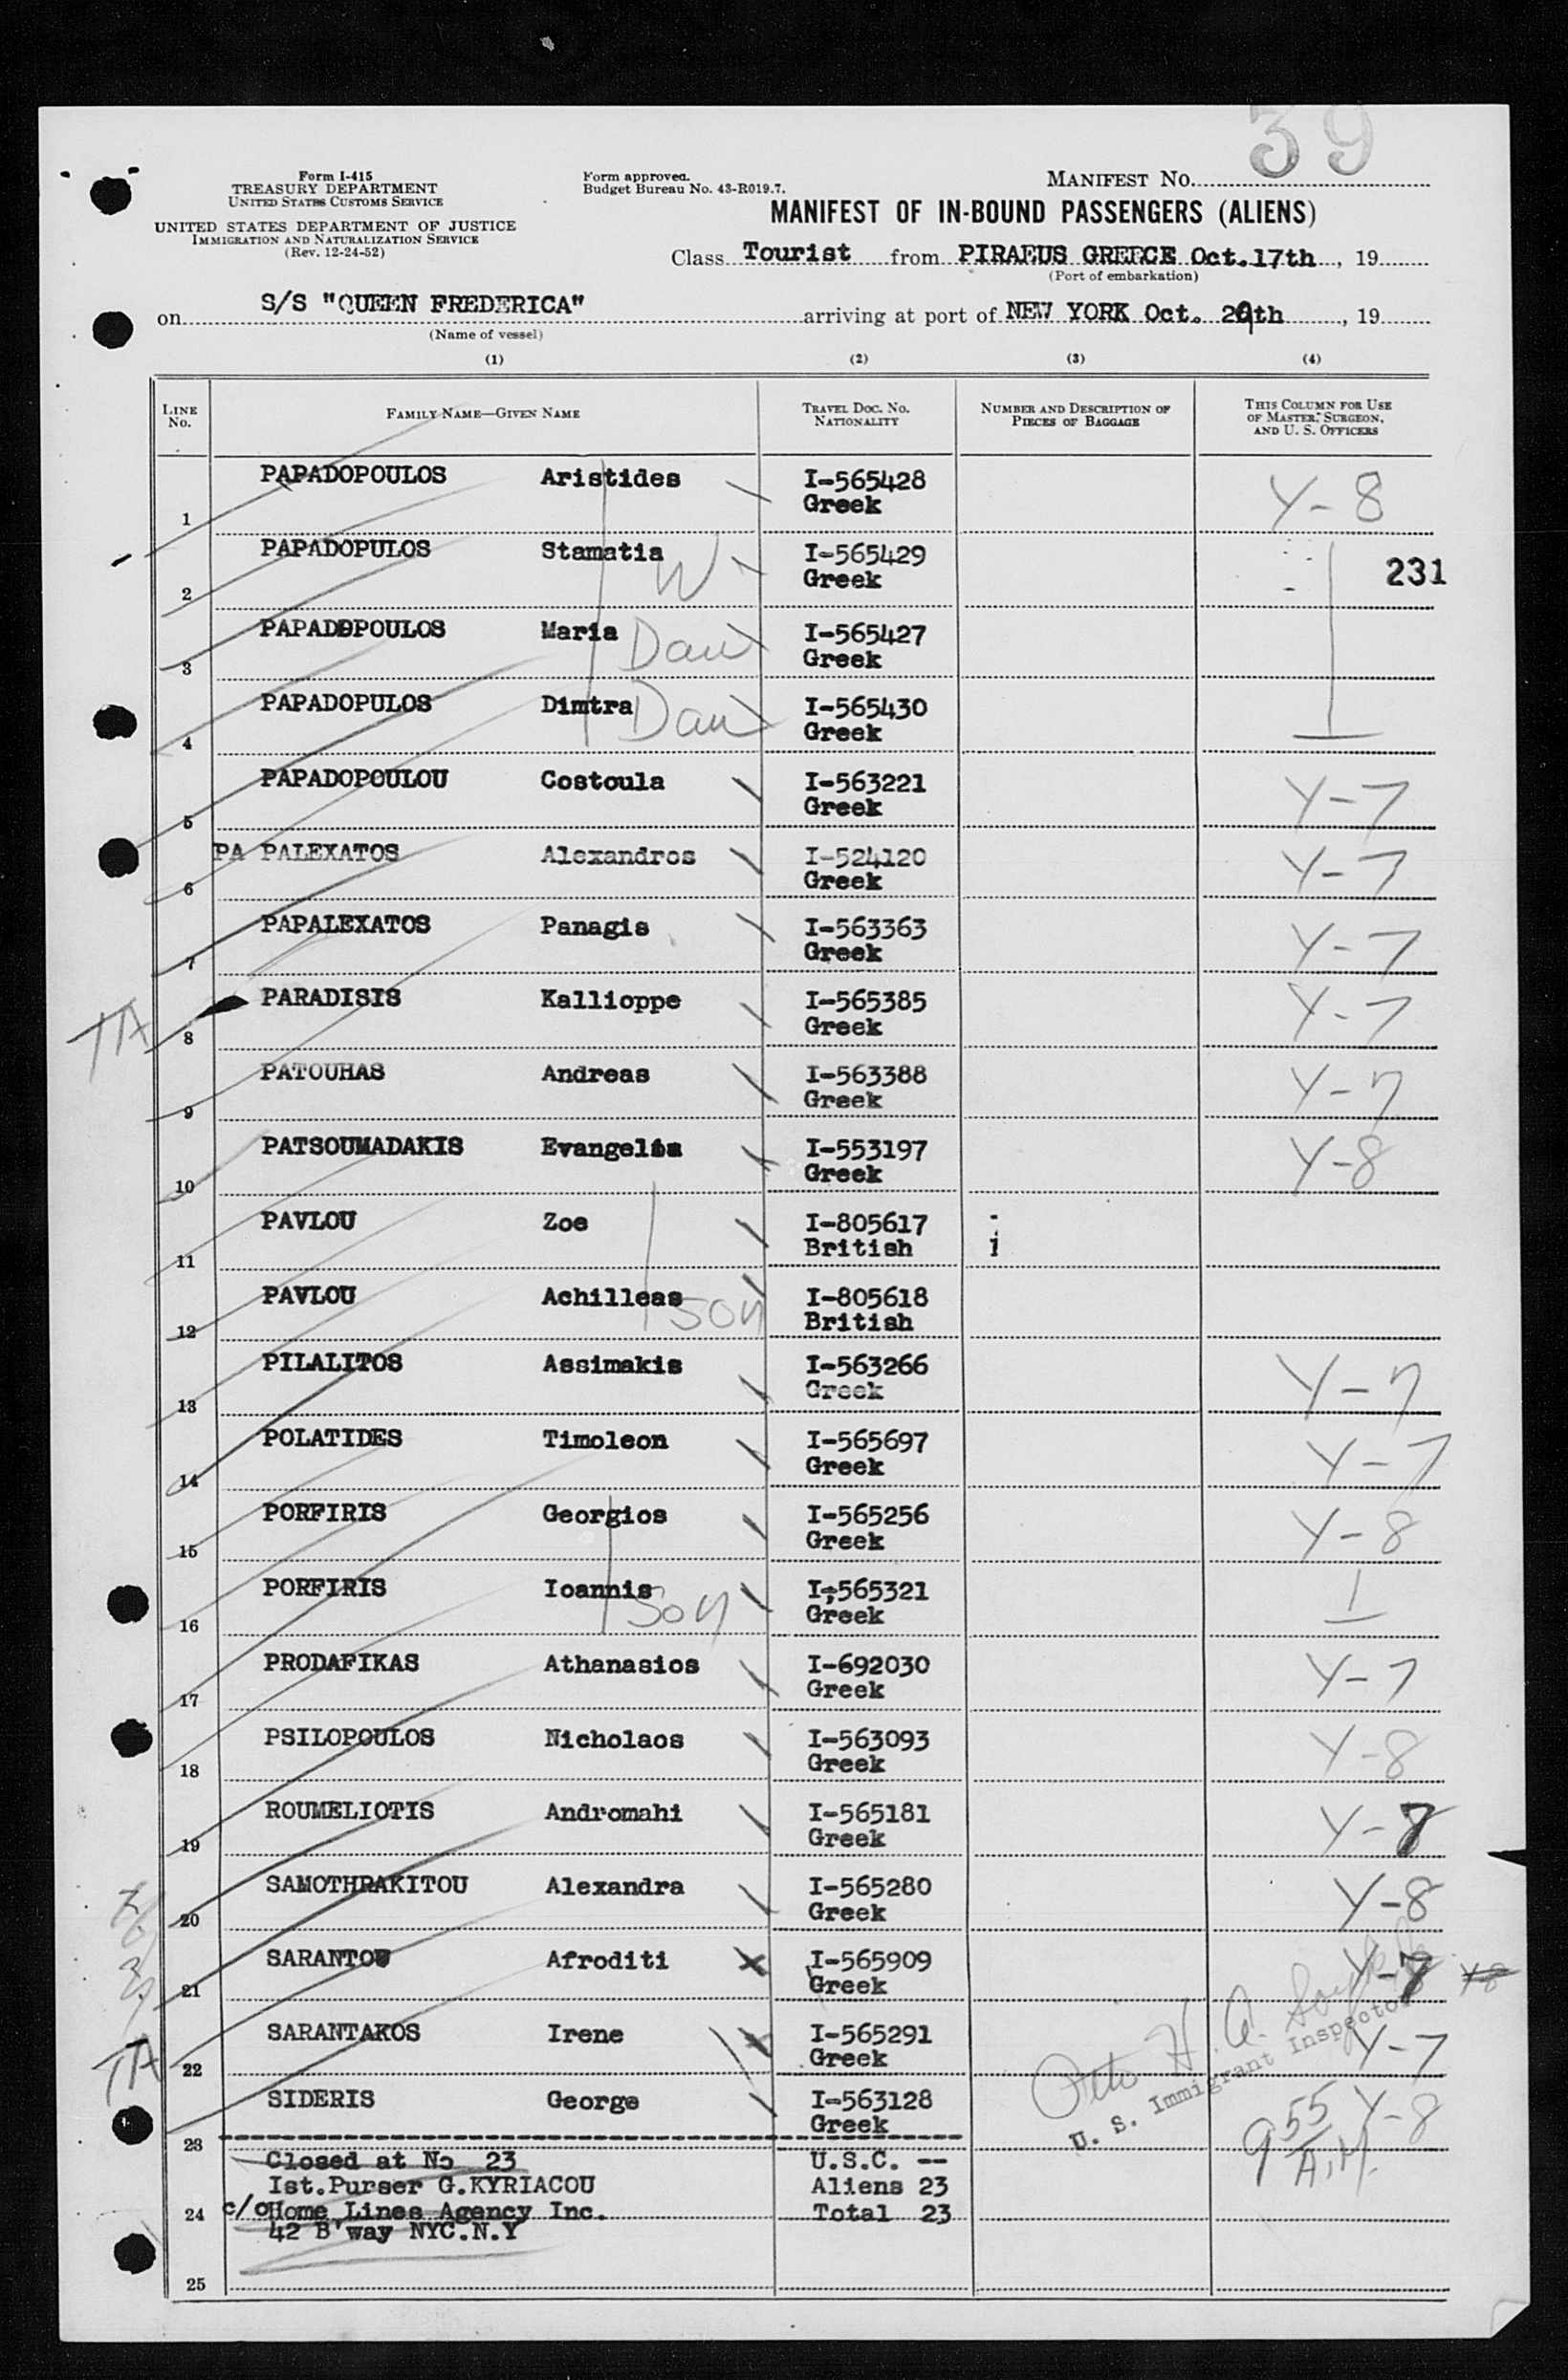 39
Form I-415
TREASURY DEPARTMENT
UNITED STATES CUSTOMS SERVICE
UNITED STATES DEPARTMENT OF JUSTICE
IMMIGRATION AND NATURALIZATION SERVICE
(Rev. 12-24-52)
Form approved.
Budget Bureau No. 43-R019.7.
MANIFEST NO.
MANIFEST OF IN-BOUND PASSENGERS (ALIENS)
Class Tourist from PIRAEUS GREECE Oct.17th, 19
(Port of embarkation)
on S/S "QUEEN FREDERICA" arriving at port of NEW YORK Oct. 29th, 19
(Name of vessel)
(1) (2) (3) (4)
LINE NO.
FAMILY NAME—GIVEN NAME
TRAVEL DOC. NO. NATIONALITY
NUMBER AND DESCRIPTION OF PIECES OF BAGGAGE
THIS COLUMN FOR USE OF MASTER, SURGEON, AND U. S. OFFICERS
1 PAPADOPOULOS Aristides I-565428 Y-8
Greek
2 PAPADOPULOS Stamatia W I-565429 231
Greek
3 PAPADOPOULOS Maria Dau I-565427
Greek
4 PAPADOPULOS Dimtra Dau I-565430
Greek
5 PAPADOPOULOU Costoula I-563221 Y-7
Greek
6 PA PALEXATOS Alexandros I-524120 Y-7
Greek
7 PAPALEXATOS Panagis I-563363 Y-7
Greek
TA 8 PARADISIS Kallioppe I-565385 Y-7
Greek
9 PATOUHAS Andreas I-563388 Y-7
Greek
10 PATSOUMADAKIS I-553197 Y-8
Greek
11 PAVLOU Zoe I-805617
British
12 PAVLOU Achilleas son I-805618
British
13 PILALITOS Assimakis I-563266 Y-7
Greek
14 POLATIDES Timoleon I-565697 Y-7
Greek
15 PORFIRIS Georgios I-565256 Y-8
Greek
16 PORFIRIS Ioannis son I-;565321
Greek
17 PRODAFIKAS Athanasios I-692030 Y-7
Greek
18 PSILOPOULOS Nicholaos I-563093 Y-8
Greek
19 ROUMELIOTIS Andromahi I-565181 Y-
Greek
20 SAMOTHRAKITOU Alexandra I-565280 Y-8
Greek
21 SARANTOU Afroditi I-565909 Y-7 Y-8
Greek
TA 22 SARANTAKOS Irene I-565291 Y-7
Greek
23 SIDERIS George I-563128 Y-8
Greek
Otto H. A.
U. S. Immigrant Inspector
9 55 A.M.
Closed at No 23 U.S.C. --
Ist.Purser G.KYRIACOU Aliens 23
24 c/o Home Lines Agency Inc. Total 23
42 B'way NYC.N.Y
25